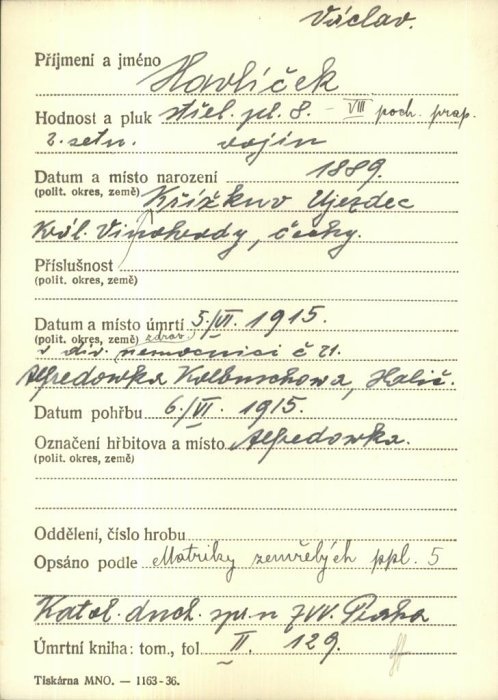 Václav.
Příjmení a jméno Havlíček
Hodnost a pluk střel. pl. 8. - VIII poch. prap.
2. setn. vojín
Datum a místo narození 1889.
(polit. okres, země) Křížkův Ujezdec
Král. Vinohrady, Čechy.
Příslušnost
(polit. okres, země)
Datum a místo úmrtí 5./VI. 1915.
(polit. okres, země) zdrav.
v div. nemocnici č 21.
Alfredowka Kolbuschowa, Halič.
Datum pohřbu 6./VI. 1915.
Označení hřbitova a místo Alfredowka.
(polit. okres, země)
Oddělení, číslo hrobu
Opsáno podle Matriky zemřelých ppl. 5
Katol. duch. spr. ZVV. Praha
Úmrtní kniha: tom., fol II. 129.
Tiskárna MNO. — 1163-36.